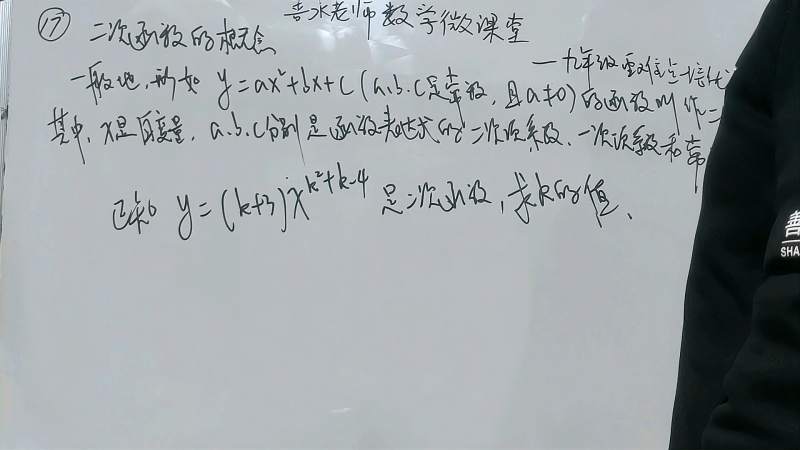 善水老师数学微课堂
⑰ 二次函数的概念
—九年级重难点培优
一般地,形如 y=ax²+bx+c(a.b.c是常数,且a≠0)的函数叫作二
其中,x是自变量,a.b.c分别是函数表达式的二次项系数、一次项系数和常
已知 y=(k+3)x^{k²+k-4} 是二次函数,求k的值、
善
SHA